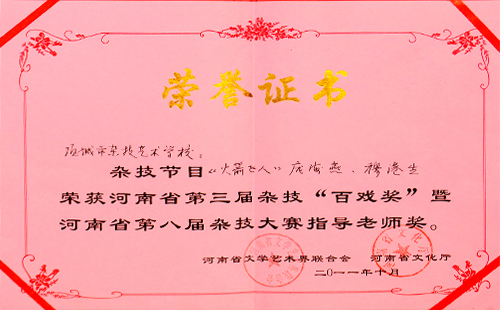 荣誉证书
项城市杂技艺术学校：
杂技节目“火箭飞人”庞海燕、穆港生
荣获河南省第三届杂技“百戏奖”暨
河南省第八届杂技大赛指导老师奖。
河南省文学艺术界联合会 河南省文化厅
二〇一一年十月